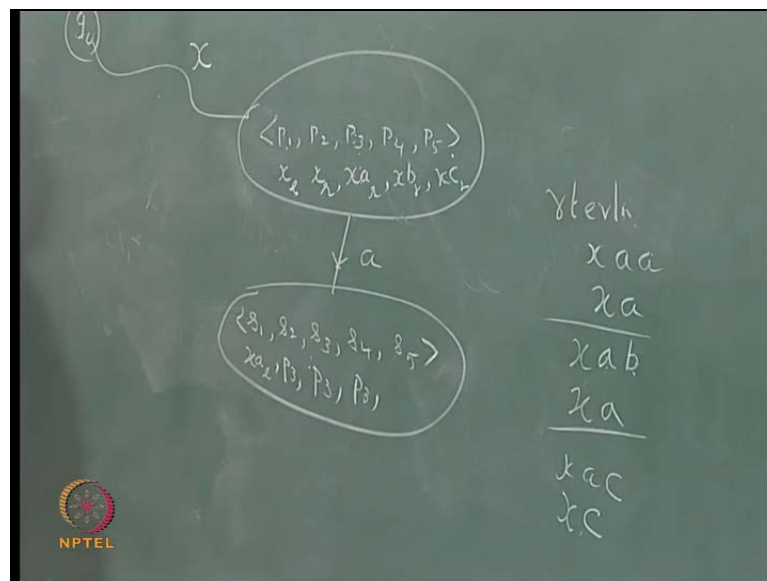 x
<P1, P2, P3, P4, P5>
xℓ xr, xar, xbr, xcr
a
<s1, s2, s3, s4, s5>
xaℓ, P3, P3, P3,
xaa
xa
xab
xa
xac
xc
NPTEL